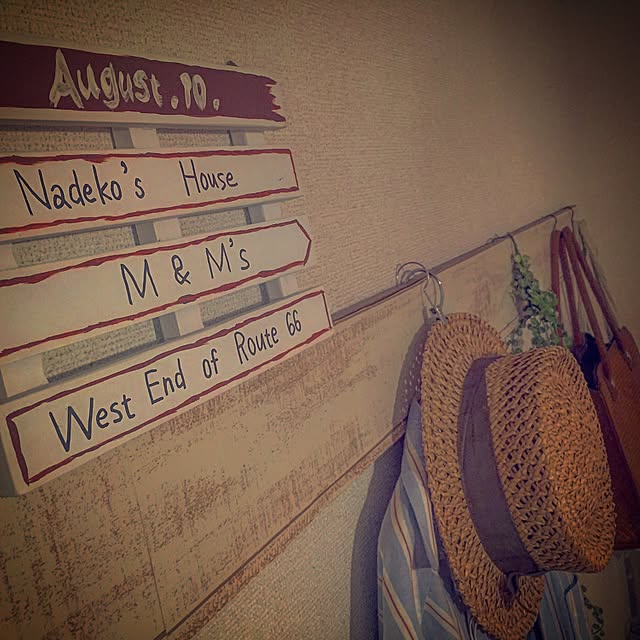 August.10.
Nadeko's House
M & M's
West End of Route 66